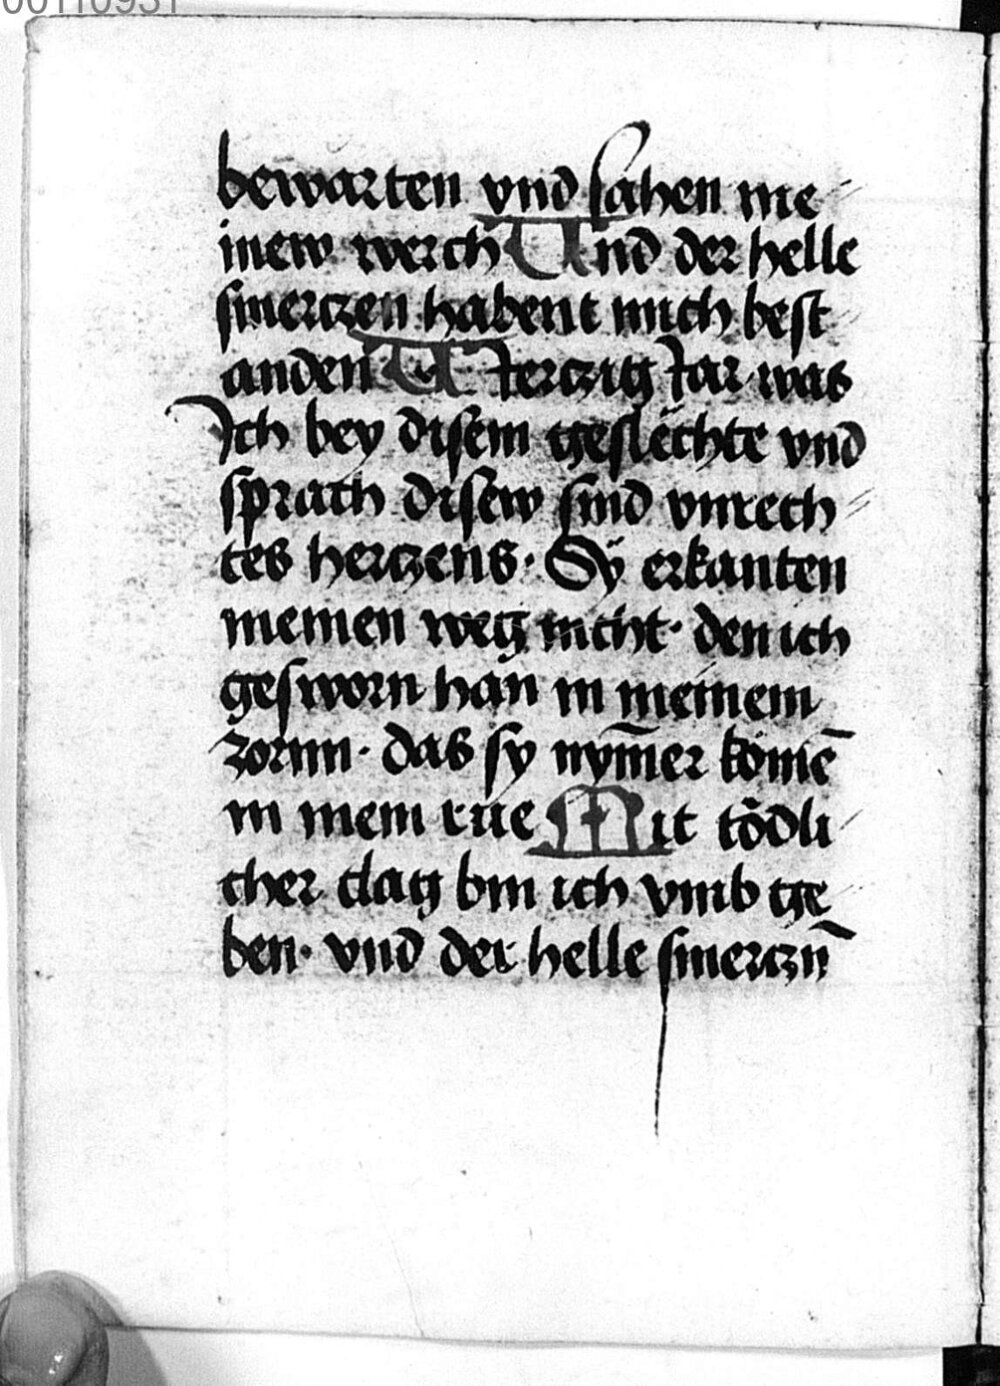 00110931
bewarten vnd sahen me⸗
inew werch Und der helle
smerczen habent mich best
anden Vierczig Jar was
Ich bey disem geslëchte vnd
sprach disew sind vnrech⸗
tes herczens· Sÿ erkanten
meinen weg nicht· den ich
gesworn han in meinem
zornn· das sy nym̄er köme̅
in mein rue Mit tödli⸗
cher clag bin ich vmb ge
ben· vnd der helle smerczn̄